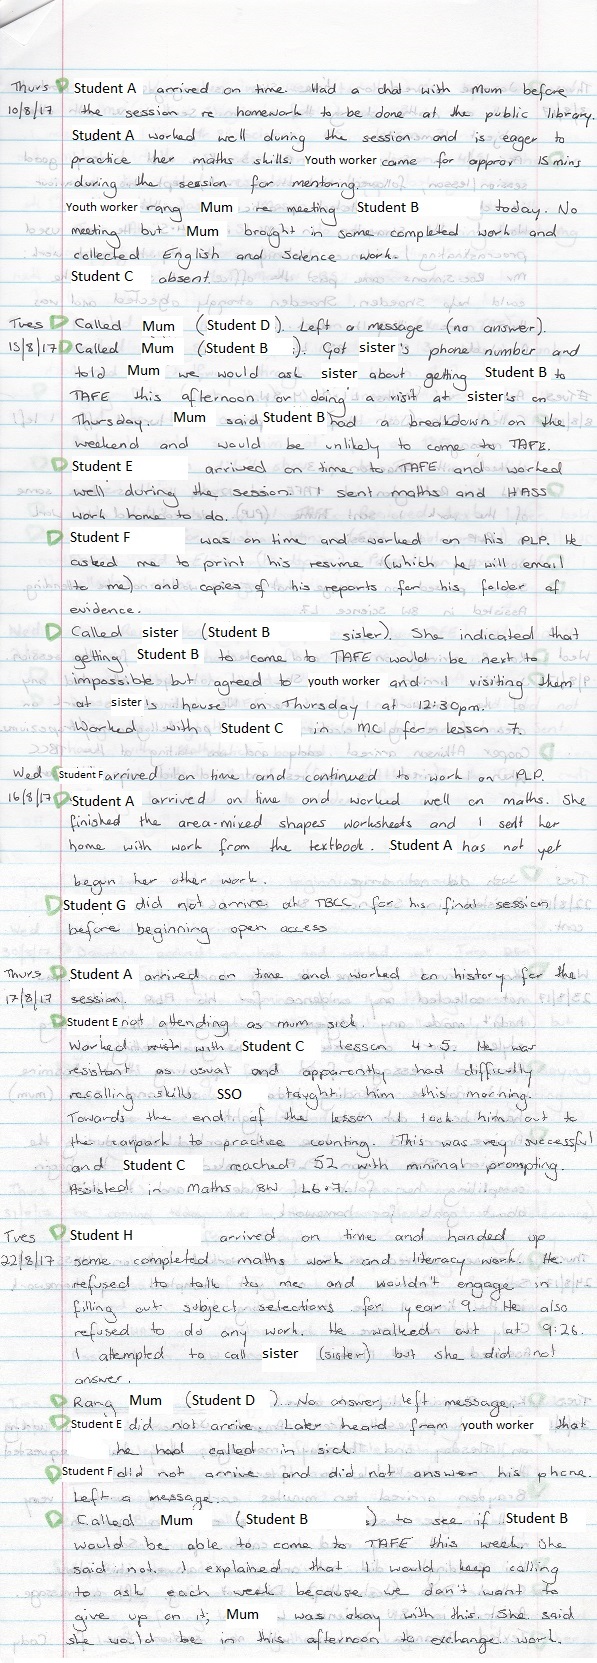 Thurs Student A arrived on time. Had a chat with Mum before
10/8/17 the session re homework to be done at the public library.
Student A worked well during the session and is eager to
practice her maths skills. Youth worker came for approx 15 mins
during the session for mentoring.
Youth worker rang Mum re meeting Student B today. No
meeting but Mum brought in some completed work and
collected English and Science work.
Student C absent.
Tues Called Mum (Student D). Left a message (no answer).
15/8/17 Called Mum (Student B ). Got sister's phone number and
told Mum we would ask sister about getting Student B to
TAFE this afternoon or doing a visit at sister's on
Thursday. Mum said Student B had a breakdown on the
weekend and would be unlikely to come to TAFE.
Student E arrived on time to TAFE and worked
well during the session. I sent maths and HASS
work home to do.
Student F was on time and worked on his PLP. He
asked me to print his resume (which he will email
to me) and copies of his reports for his folder of
evidence.
Called sister (Student B sister). She indicated that
getting Student B to come to TAFE would be next to
impossible but agreed to youth worker and I visiting them
at sister's house on Thursday at 12:30pm.
Worked with Student C in MC for lesson 7.
Wed Student F arrived on time and continued to work on PLP.
16/8/17 Student A arrived on time and worked well on maths. She
finished the area-mixed shapes worksheets and I sent her
home with work from the textbook. Student A has not yet
begun her other work.
Student G did not arrive at TBCC for his final session
before beginning open access
Thurs Student A arrived on time and worked on history for the
17/8/17 session.
Student E not attending as mum sick.
Worked with Student C lesson 4+5. He was
resistant as usual and apparently had difficulty
recalling skills SSO taught him this morning.
Towards the end of the lesson I took him out to
the carpark to practice counting. This was very successful
and Student C reached 52 with minimal prompting.
Assisted in Maths 8W L6+7.
Tues Student H arrived on time and handed up
22/8/17 some completed maths work and literacy work. He
refused to talk to me and wouldn't engage in
filling out subject selections for year 9. He also
refused to do any work. He walked out at 9:26.
I attempted to call sister (sister) but she did not
answer.
Rang Mum (Student D ). No answer, left message.
Student E did not arrive. Later heard from youth worker that
he had called in sick.
Student F did not arrive and did not answer his phone.
Left a message.
Called Mum (Student B ) to see if Student B
would be able to come to TAFE this week. She
said not. I explained that I would keep calling
to ask each week because we don't want to
give up on it; Mum was okay with this. She said
she would be in this afternoon to exchange work.